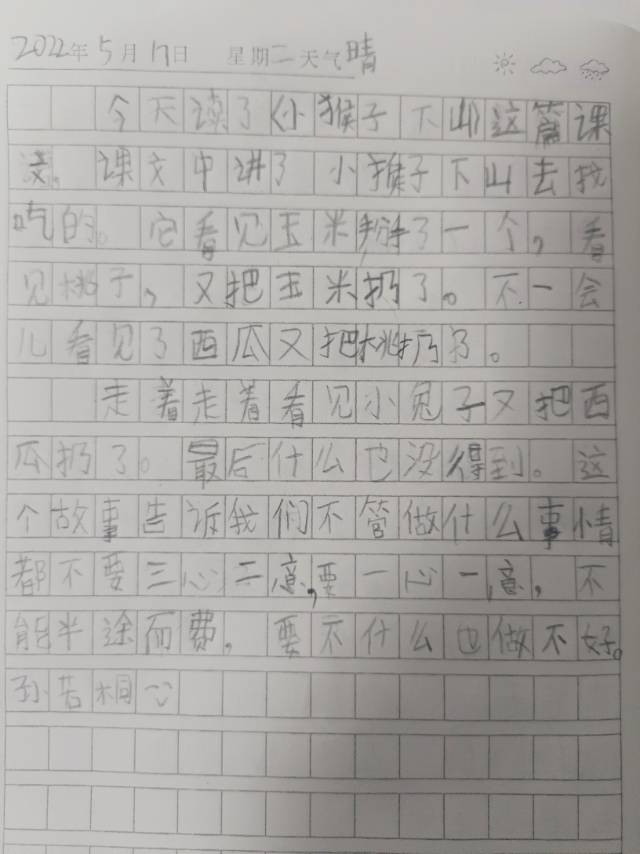 2022年5月17日 星期二天气晴
今天读了《小猴子下山》这篇课
文。课文中讲了小猴子下山去找
吃的。它看见玉米掰了一个,看
见桃子,又把玉米扔了。不一会
儿看见了西瓜又把桃扔了。
走着走着看见小兔子又把西
瓜扔了。最后什么也没得到。这
个故事告诉我们不管做什么事情
都不要三心二意,要一心一意,不
能半途而费。要不什么也做不好。